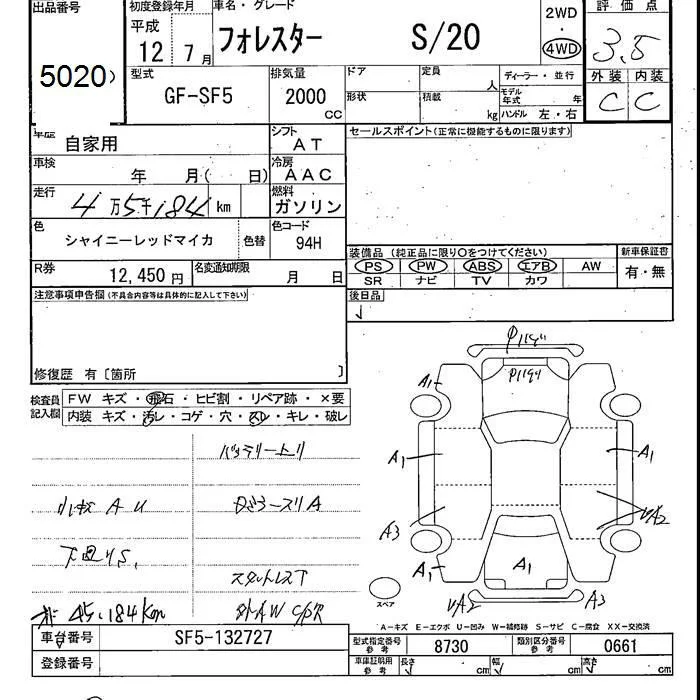 出品番号
5020
初度登録年月
平成
12 7月
車名・グレード
フォレスター S/20
2WD
・
4WD
評価点
3.5
外装 内装
C C
型式
GF-SF5
排気量
2000
cc
ドア
形状
定員
人
積載
kg
ディーラー・並行
モデル年式 年
ハンドル 左・右
車歴
自家用
シフト
AT
車検
年 月( 日)
冷房
AAC
走行
4万5千184 km
燃料
ガソリン
色
シャイニーレッドマイカ
色替
色コード
94H
R券
12,450円
名変通知期限
月 日
セールスポイント(正常に機能するものに限ります)
装備品(純正品に限り○をつけてください)
PS PW ABS エアB AW
SR ナビ TV カワ
新車保証書
有・無
後日品
注意事項申告欄(不具合内容等は具体的に記入して下さい)
修復歴 有〔箇所 〕
検査員
記入欄
FW キズ・飛石・ヒビ割・リペア跡・×要
内装 キズ・汚レ・コゲ・穴・スレ・キレ・破レ
バッテリートリ
小キズ A U
下回りS.
スタットレス下
45.184km
外AW
A1
A1
A1
A3
A2
A1
A1
A2
A3
スペア
A-キズ E-エクボ U-凹み W-補修跡 S-サビ C-腐食 XX-交換済
車台番号
SF5-132727
登録番号
型式指定番号
参考
8730
類別区分番号
参考
0661
車庫証明用
参考
長さ cm
幅 cm
高さ cm